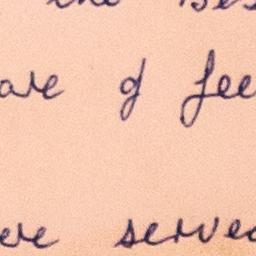 the
are of fee
ere served